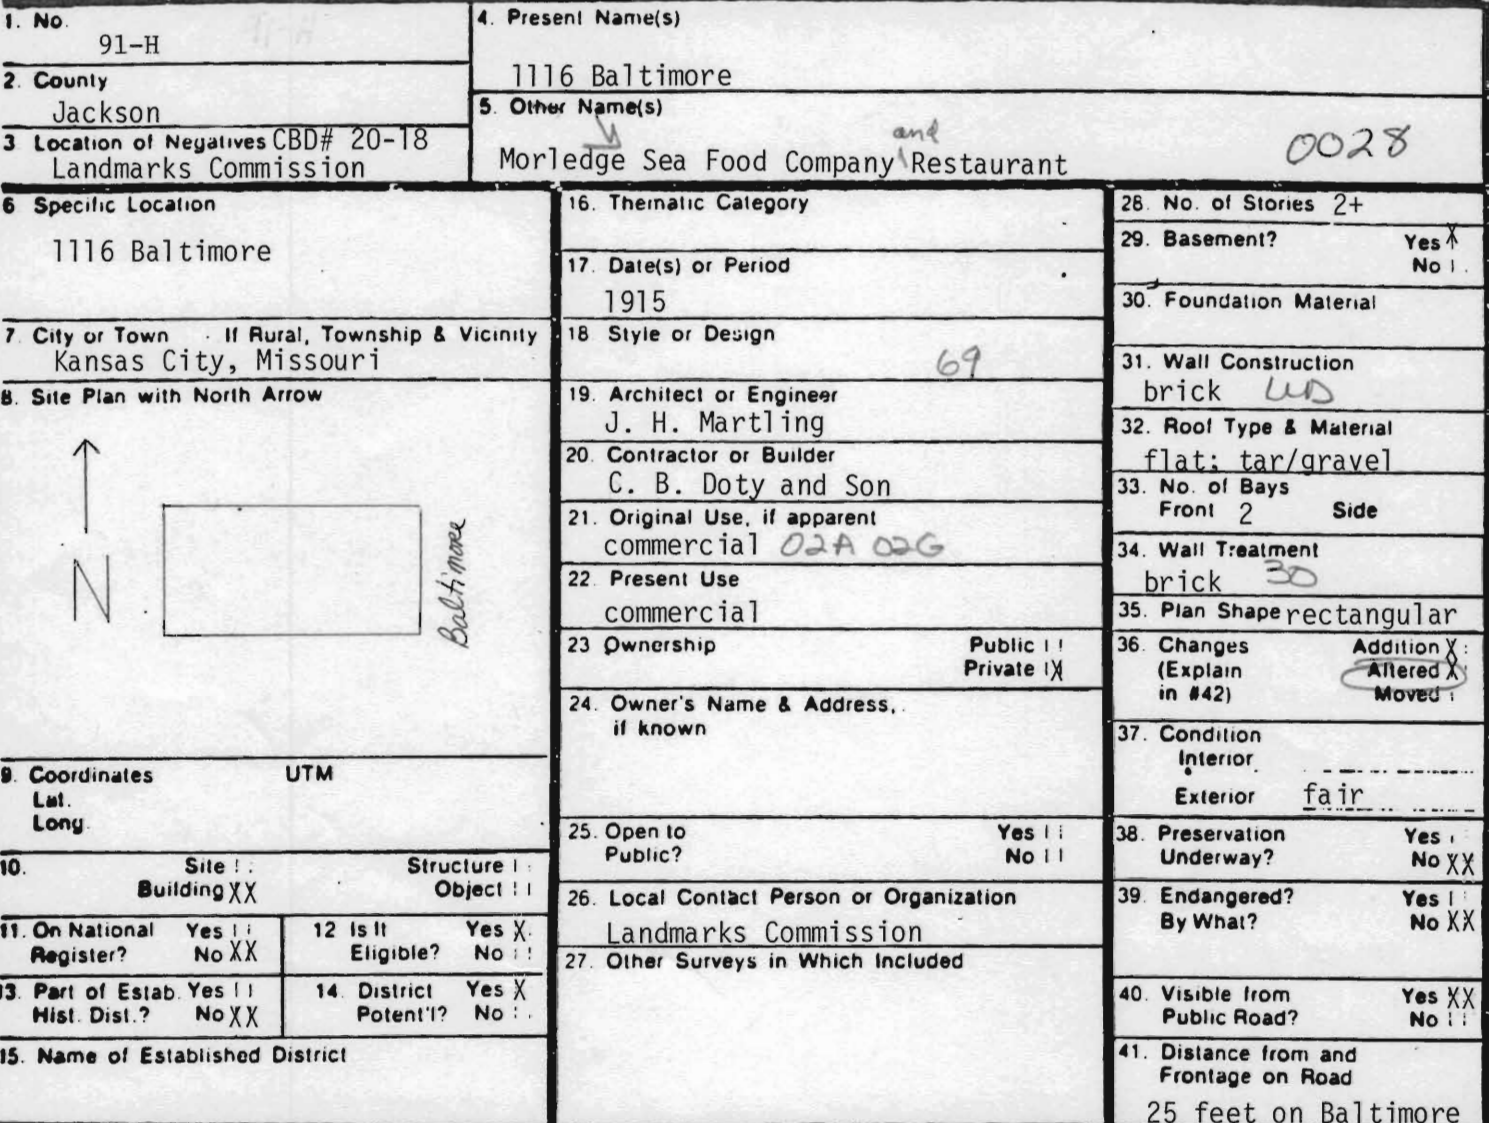 1. No.
91-H
2. County
Jackson
3 Location of Negatives CBD# 20-18
Landmarks Commission
4. Present Name(s)
1116 Baltimore
5. Other Name(s)
and
Morledge Sea Food Company Restaurant
0028
6 Specific Location
1116 Baltimore
7. City or Town If Rural, Township & Vicinity
Kansas City, Missouri
8. Site Plan with North Arrow
N
Baltimore
9. Coordinates UTM
Lat.
Long.
10. Site Structure
Building XX Object
11. On National Yes
Register? No XX
12 Is It Yes X
Eligible? No
13. Part of Estab. Yes
Hist. Dist.? No XX
14. District Yes X
Potent'l? No
15. Name of Established District
16. Thematic Category
17. Date(s) or Period
1915
18 Style or Design
69
19. Architect or Engineer
J. H. Martling
20. Contractor or Builder
C. B. Doty and Son
21. Original Use, if apparent
commercial 02A 02G
22. Present Use
commercial
23 Ownership Public
Private X
24. Owner's Name & Address,
if known
25. Open to Yes
Public? No
26. Local Contact Person or Organization
Landmarks Commission
27. Other Surveys in Which Included
28. No. of Stories 2+
29. Basement? Yes X
No
30. Foundation Material
31. Wall Construction
brick
32. Roof Type & Material
flat; tar/gravel
33. No. of Bays
Front 2 Side
34. Wall Treatment
brick 30
35. Plan Shape rectangular
36. Changes Addition X
(Explain Altered X
in #42) Moved
37. Condition
Interior
Exterior fair
38. Preservation Yes
Underway? No XX
39. Endangered? Yes
By What? No XX
40. Visible from Yes XX
Public Road? No
41. Distance from and
Frontage on Road
25 feet on Baltimore